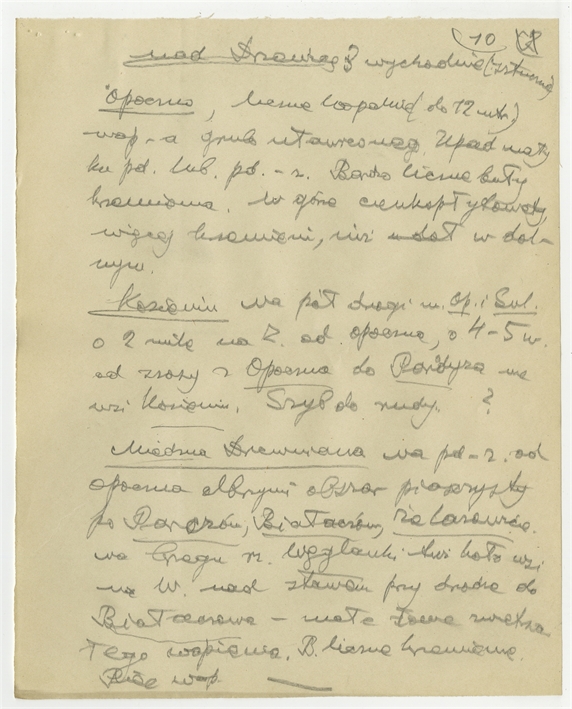 10
nad Drzewicą? wychodnie (sztuczne)
Opoczno, liczne łopalnie (do 12 mtr.)
wap. - a grubo uławiconego. Upad mały
ku pd. lub pd. - z. Bardzo liczne buły
krzemienia. W górze cienkopłytkowaty,
więcej krzemieni, niż w dol-
nym.
Kozienin na pół drogi m. Op. i Sul.
o 2 mile na Z. od opoczna, o 4-5 w.
od szosy z Opoczna do Paradyża we
wsi Kozienin. Szyb do rudy. ?
Miedzna Drewniana na pd-z. od
opoczna olbrzymi obszar piaszczysty
po Parczów, Białaczów, Żelazowice.
na brzegu rz. Węglanki koło wsi
na W. nad stawem przy drodze do
Białaczowa - małe zwietrza
łego wapienia. B. liczne krzemienie.
wap.